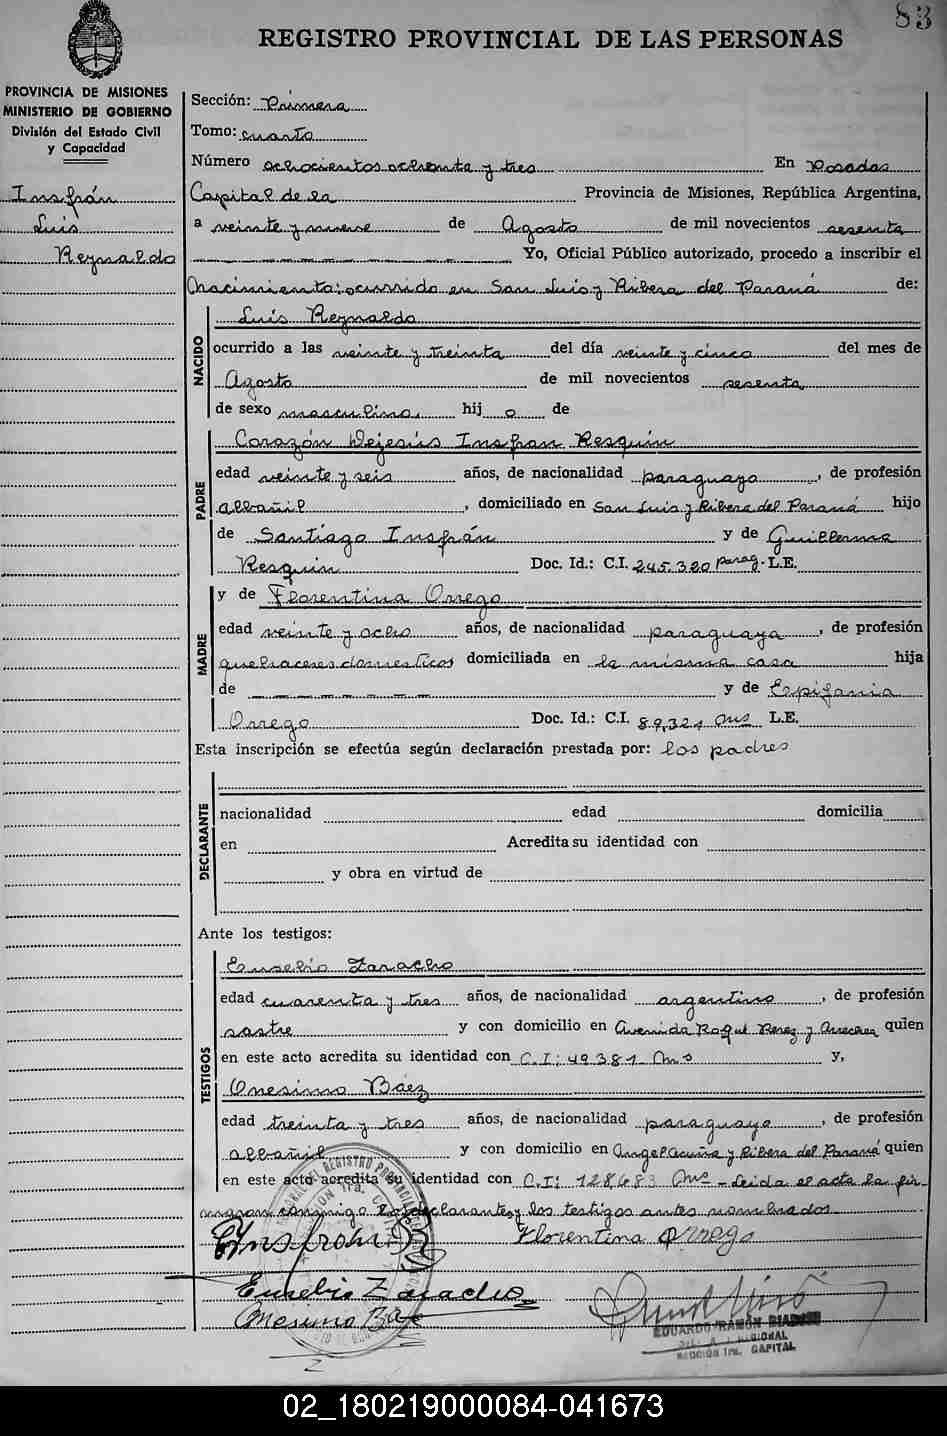 83
REGISTRO PROVINCIAL DE LAS PERSONAS
PROVINCIA DE MISIONES
MINISTERIO DE GOBIERNO
División del Estado Civil
y Capacidad
Insfrán
Luis
Reynaldo
Sección: Primera
Tomo: cuarto
Número ochocientos ochenta y tres En Posadas
Capital de la Provincia de Misiones, República Argentina,
a veinte y nueve de Agosto de mil novecientos sesenta
Yo, Oficial Público autorizado, procedo a inscribir el
Nacimiento: ocurrido en San Luis y Ribera del Paraná de:
NACIDO
Luis Reynaldo
ocurrido a las veinte y treinta del día veinte y cinco del mes de
Agosto de mil novecientos sesenta
de sexo masculino, hij o de
PADRE
Corazón Dejesús Insfran Resquin
edad veinte y seis años, de nacionalidad paraguayo, de profesión
albañil, domiciliado en San Luis y Ribera del Paraná hijo
de Santiago Insfrán y de Guillerma
Resquin Doc. Id.: C.I. 245.320 parag. L.E.
MADRE
y de Florentina Orrego
edad veinte y ocho años, de nacionalidad paraguaya, de profesión
quehaceres domesticos domiciliada en la misma casa hija
de y de Epifania
Orrego Doc. Id.: C.I. 89,321 Mns L.E.
Esta inscripción se efectúa según declaración prestada por: los padres
DECLARANTE
nacionalidad edad domicilia
en Acredita su identidad con
y obra en virtud de
Ante los testigos:
TESTIGOS
Eusebio Zaracho
edad cuarenta y tres años, de nacionalidad argentino, de profesión
sastre y con domicilio en Avenida Roque Perez y quien
en este acto acredita su identidad con C.I: 49381 Mns y,
Onesimo Báez
edad treinta y tres años, de nacionalidad paraguayo, de profesión
albañil y con domicilio en Angel Acuña y Ribera del Paraná quien
en este acto acredita su identidad con C.I: 128683 Mns - Leida el acta la fir-
maron conmigo los declarantes y los testigos antes nombrados.
Insfrán Florentina Orrego
Eusebio Zaracho
Onesimo Báez
EDUARDO RAMÓN
SECCIÓN 1ra. CAPITAL
02_180219000084-041673